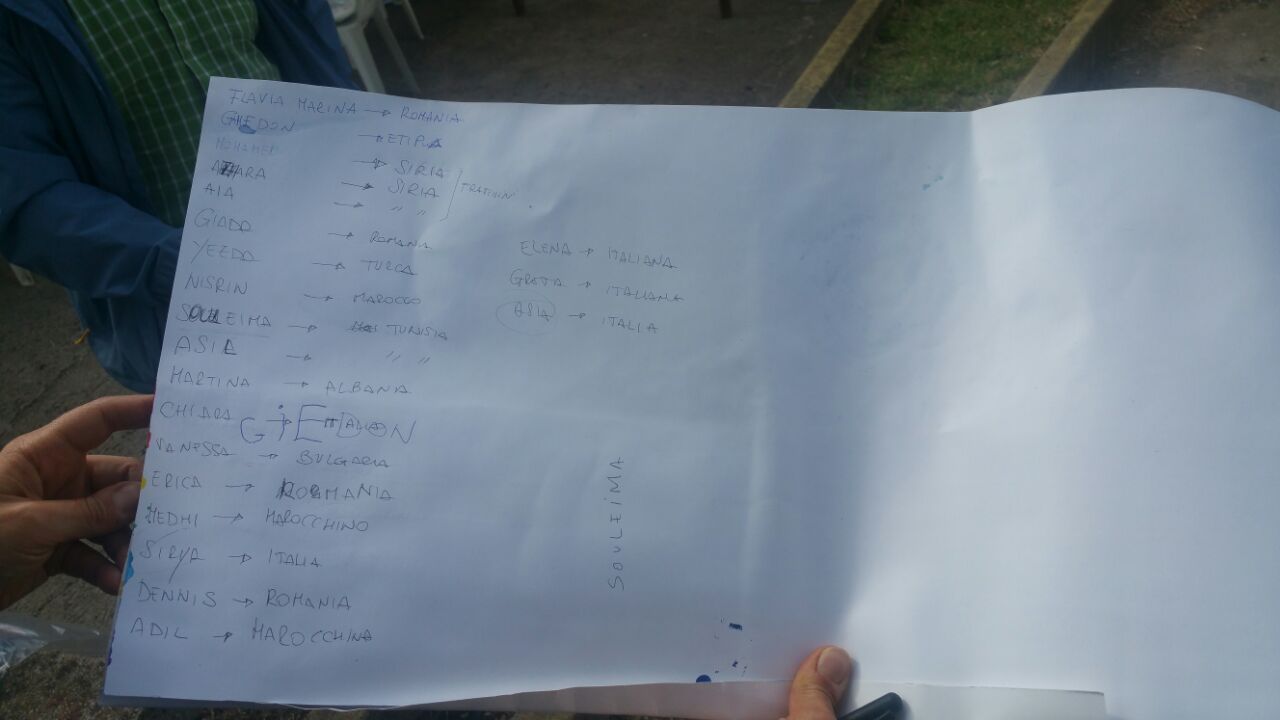 FLAVIA MARINA → ROMANIA
GHEDON → ETIPIA
MOHAMED → SIRIA
AZHARA → SIRIA
AIA → " "
GIADA → ROMANA
YEEDA → TURCA
NISRIN → MAROCCO
SOULEIMA → TUNISIA
ASIL → " "
MARTINA → ALBANIA
CHIARA → ITALIA
GiEDON
VANESSA → BULGARIA
ERICA → ROMANIA
MEDHI → MAROCCHINO
SIRYA → ITALIA
DENNIS → ROMANIA
ADIL → MAROCCHINA
ELENA → ITALIANA
GRETA → ITALIANA
ASIA → ITALIA
SOULEiMA